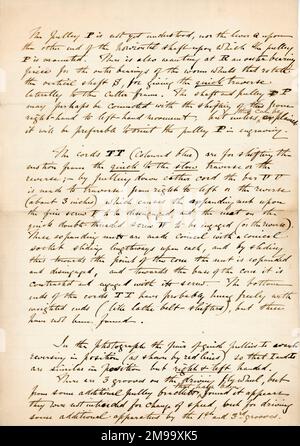 The Pulley P is not yet understood, nor the lever a upon
the other end of the horizontal shaft upon which the pulley
P is mounted. There is also wanting at R an outer bearing
piece for the outer bearings of the worm wheels that rotate
the vertical shaft S, for giving the quick traverse
laterally to the cutter frame. The shaft and pulley P
may perhaps be connected with the shifting of the from
right-hand to left-hand movement. but unless explained
it will be preferable to omit the pulley P in engraving.
The cords TT (coloured blue) are for shifting the
motion from the quick to the slow traverse or the
reverse; by pulling down either cord the bar
is made to traverse from right to left or the reverse
(about 3 inches) which causes the expanding nut upon
the fine screw to be disengaged and the nut on the
quick double threaded screw to be engaged (or the reverse).
These expanding nuts are made conical with a conical
socket sliding lengthways upon each, and by sliding
this towards the point of the cone the nut is expanded
and disengaged, and towards the base of the cone it is
contracted and engaged with its screw. The bottom
ends of the cords TT have probably hung freely with
weighted ends (like lathe belt shifters), but these
have not been found.
In the photograph the pair of guide pulleys to
reversing in position (as shown by red lines) so that
are similar in position but right & left handed.
There are 3 grooves on the driving fly wheel, but
from some additional pulley brackets found it appears
they were not intended for change of speed, but for driving
some additional apparatus by the 1st and 3rd grooves.
alamy
Image ID: 2M99XK5
www.alamy.com